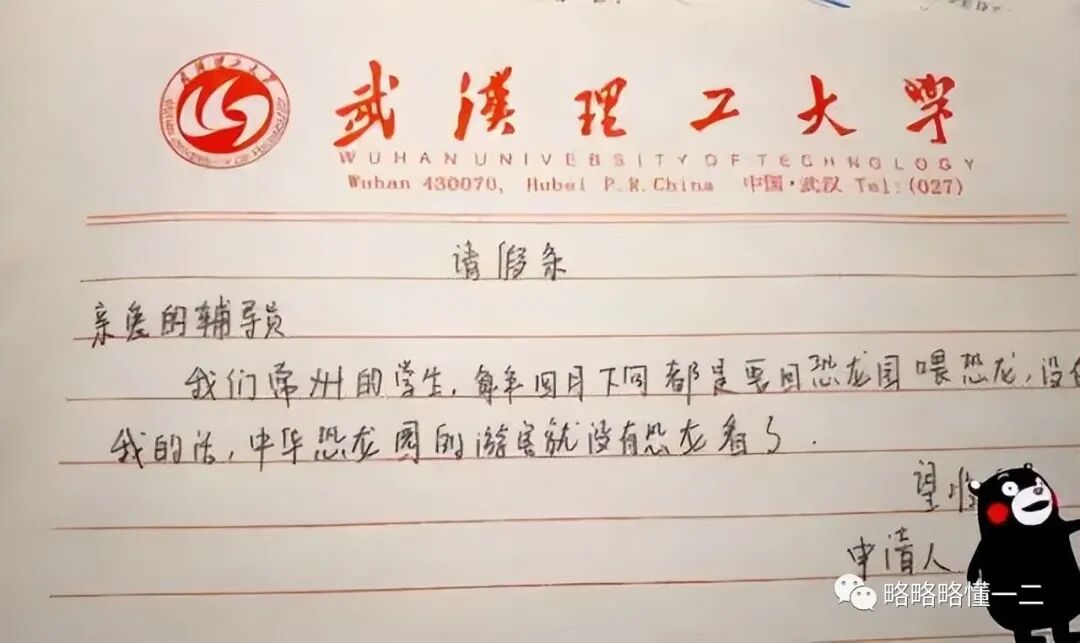 武汉理工大学
武漢理工大学
WUHAN UNIVERSITY OF TECHNOLOGY
Wuhan 430070, Hubei P.R.China 中国·武汉 Tel:(027)
请假条
亲爱的辅导员
我们常州的学生,每年四月下旬都是要回恐龙园喂恐龙,没
我的话,中华恐龙园的游客就没有恐龙看了.
望
申请人
略略略懂一二